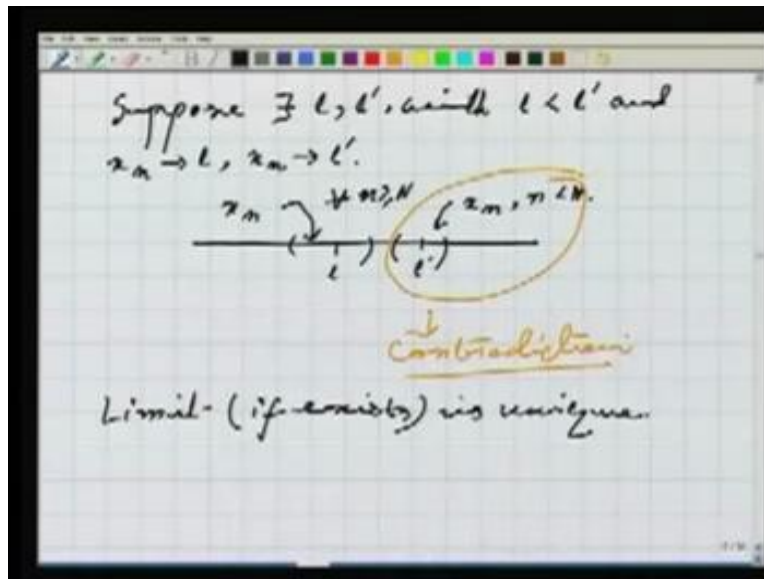 Suppose ∃ l, l', with l < l' and
x_n → l, x_n → l'.
x_n ∀ n ≥ N x_n, n < N.
( l ) ( l' )
Contradiction
Limit (if exists) is unique.